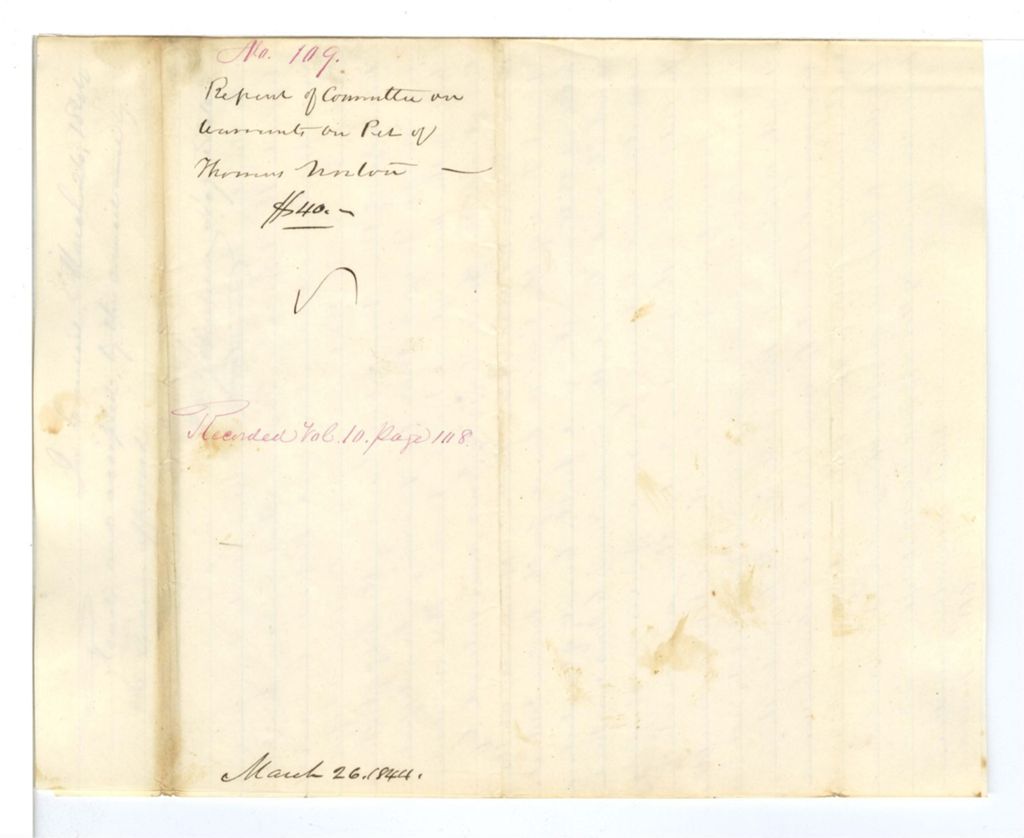 No. 109.
Report of Committee on
Warrants on Pet of
Thomas Norton —
$40.-
Recorded Vol. 10. Page 108.
March 26. 1844.